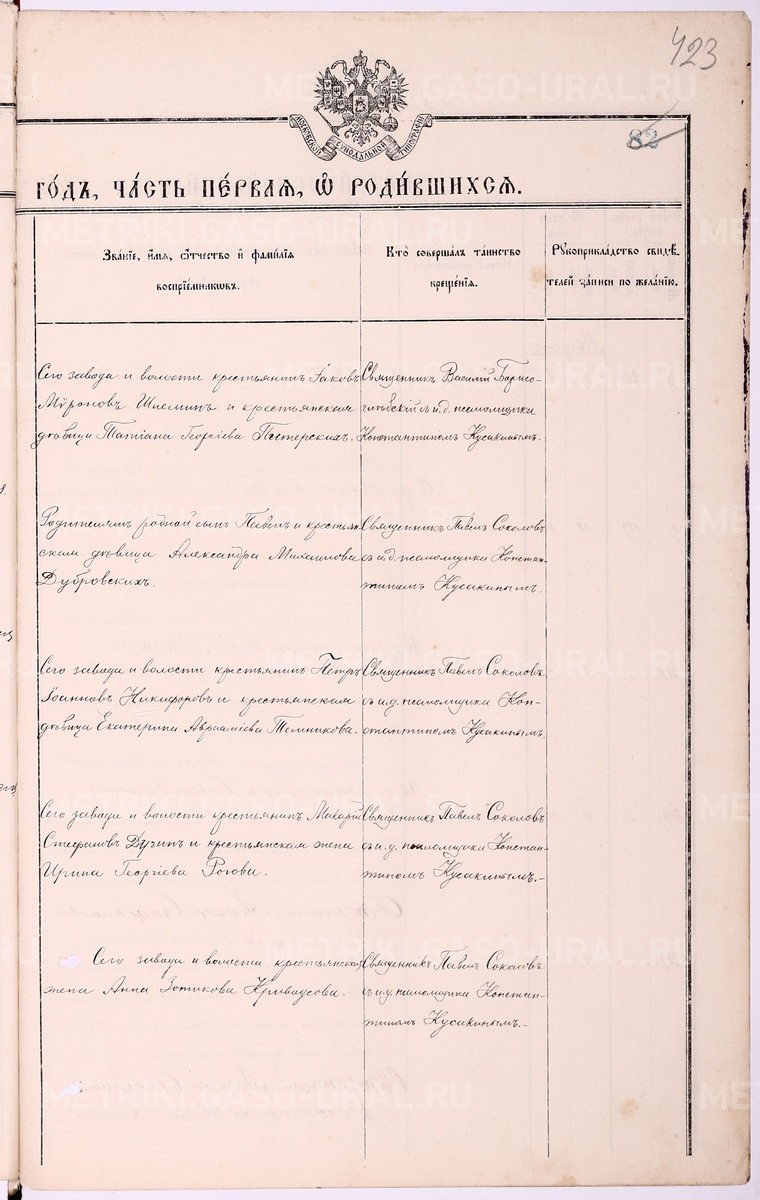 423
82
МОСКОВСКОЙ СѴНОДАЛЬНОЙ ТИПОГРАФІИ
ГО́ДЪ, ЧА́СТЬ ПЕ́РВАЯ, Ѡ҆ РОДИ́ВШИХСЯ.
Зва́нїе, и҆́мя, ѻ҆́тчество и҆ фами́лїя
воспрїе́мниковъ.
Кто̀ соверша́лъ та́инство
креще́нїя.
Рꙋкоприкла́дство свидѣ́-
телей за́писи по жела́нїю.
Сего завода и волости крестьянинъ Іаковъ
Мѵроновъ Шлеминъ и крестьянская
дѣвица Татіана Георгіева Питерскихъ.
Священникъ Василій Борисо-
глѣбскій съ и.д. псаломщика
Константиномъ Кусакинымъ.
Родителямъ родной сынъ Павелъ и крестьян-
ская дѣвица Александра Михаилова
Дубровскихъ.
Священникъ Павелъ Соколовъ
съ и.д. псаломщика Констан-
тиномъ Кусакинымъ.
Сего завода и волости крестьянинъ Петръ
Іоанновъ Никифоровъ и крестьянская
дѣвица Екатерина Авраамиева Темникова.
Священникъ Павелъ Соколовъ
съ и.д. псаломщика Кон-
стантиномъ Кусакинымъ.
Сего завода и волости крестьянинъ Макарій
Стефановъ и крестьянская жена
Ирина Георгіева Рогова.
Священникъ Павелъ Соколовъ
съ и.д. псаломщика Констан-
тиномъ Кусакинымъ.-
Сего завода и волости крестьянская
жена Анна Зотикова Кривоусова.
Священникъ Павелъ Соколовъ
съ и.д. псаломщика Констан-
тиномъ Кусакинымъ.-
METRIKI.GASO-URAL.RU